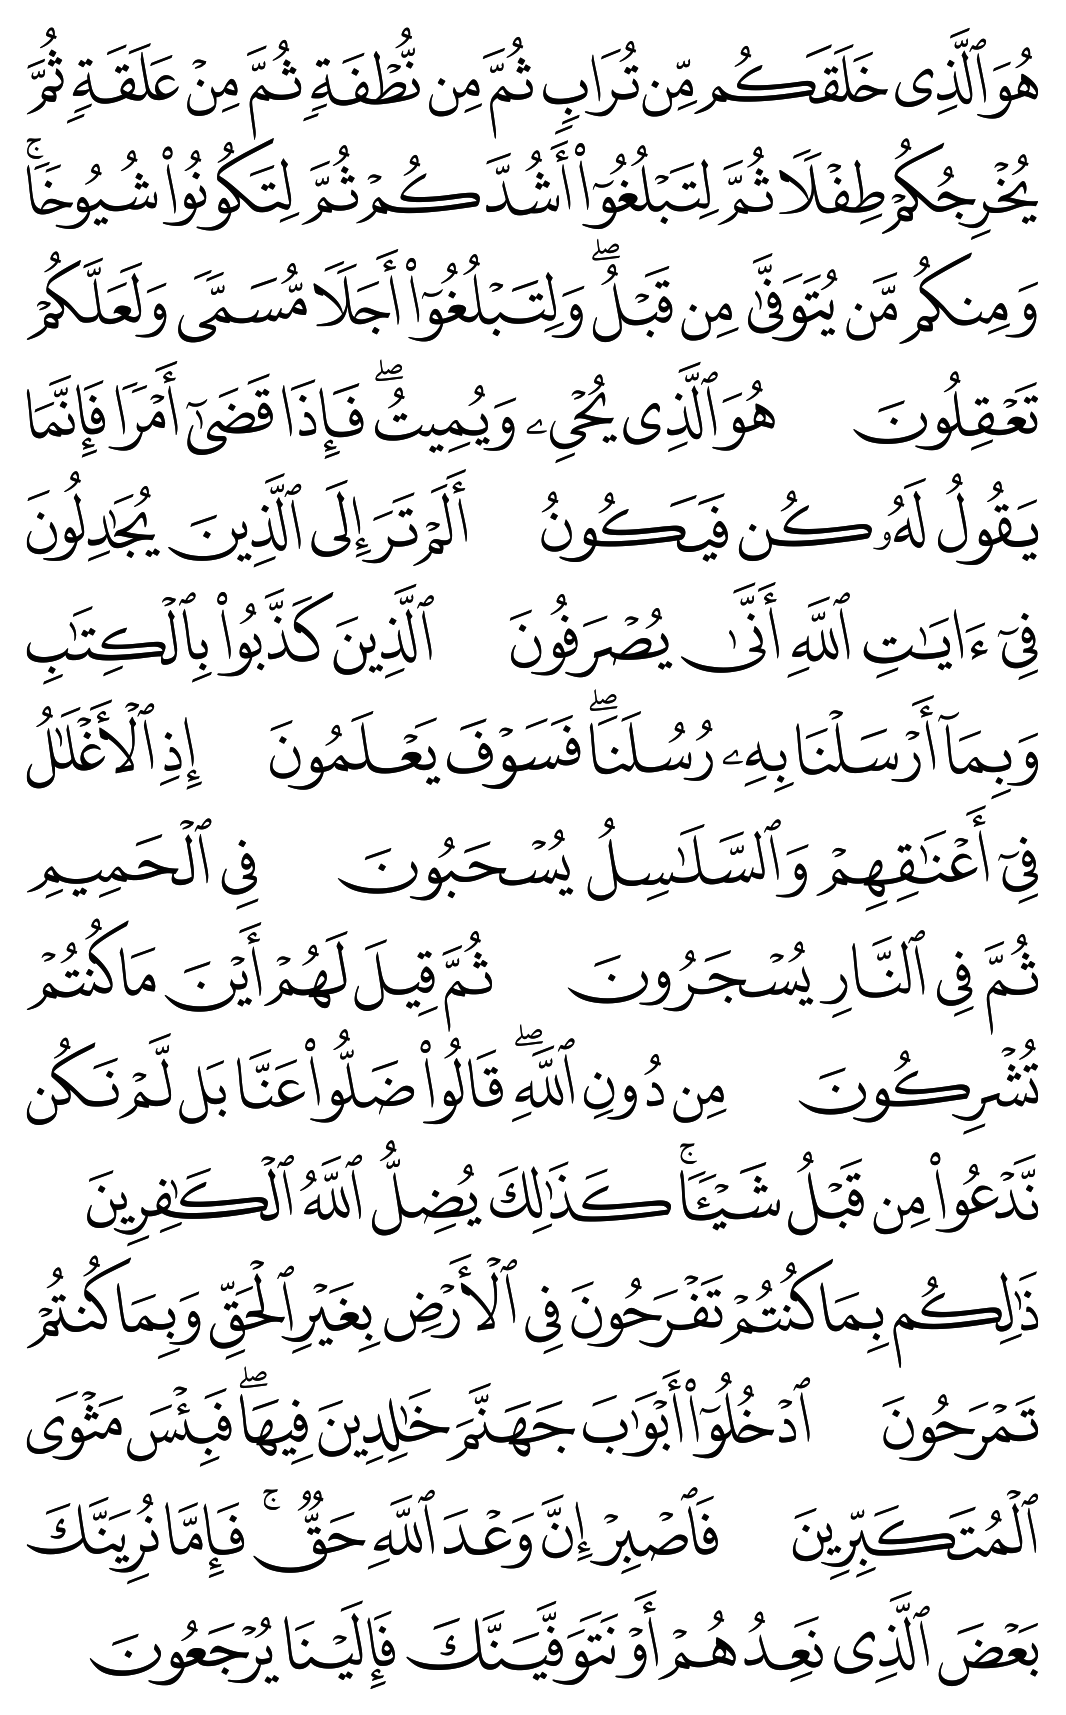 هُوَ ٱلَّذِى خَلَقَكُم مِّن تُرَابٍ ثُمَّ مِن نُّطْفَةٍ ثُمَّ مِنْ عَلَقَةٍ ثُمَّ
يُخْرِجُكُمْ طِفْلًا ثُمَّ لِتَبْلُغُوٓا۟ أَشُدَّكُمْ ثُمَّ لِتَكُونُوا۟ شُيُوخًا ۚ
وَمِنكُم مَّن يُتَوَفَّىٰ مِن قَبْلُ ۖ وَلِتَبْلُغُوٓا۟ أَجَلًا مُّسَمًّى وَلَعَلَّكُمْ
تَعْقِلُونَ هُوَ ٱلَّذِى يُحْىِۦ وَيُمِيتُ ۖ فَإِذَا قَضَىٰٓ أَمْرًا فَإِنَّمَا
يَقُولُ لَهُۥ كُن فَيَكُونُ أَلَمْ تَرَ إِلَى ٱلَّذِينَ يُجَٰدِلُونَ
فِىٓ ءَايَٰتِ ٱللَّهِ أَنَّىٰ يُصْرَفُونَ ٱلَّذِينَ كَذَّبُوا۟ بِٱلْكِتَٰبِ
وَبِمَآ أَرْسَلْنَا بِهِۦ رُسُلَنَا ۖ فَسَوْفَ يَعْلَمُونَ إِذِ ٱلْأَغْلَٰلُ
فِىٓ أَعْنَٰقِهِمْ وَٱلسَّلَٰسِلُ يُسْحَبُونَ فِى ٱلْحَمِيمِ
ثُمَّ فِى ٱلنَّارِ يُسْجَرُونَ ثُمَّ قِيلَ لَهُمْ أَيْنَ مَا كُنتُمْ
تُشْرِكُونَ مِن دُونِ ٱللَّهِ ۖ قَالُوا۟ ضَلُّوا۟ عَنَّا بَل لَّمْ نَكُن
نَّدْعُوا۟ مِن قَبْلُ شَيْـًٔا ۚ كَذَٰلِكَ يُضِلُّ ٱللَّهُ ٱلْكَٰفِرِينَ
ذَٰلِكُم بِمَا كُنتُمْ تَفْرَحُونَ فِى ٱلْأَرْضِ بِغَيْرِ ٱلْحَقِّ وَبِمَا كُنتُمْ
تَمْرَحُونَ ٱدْخُلُوٓا۟ أَبْوَٰبَ جَهَنَّمَ خَٰلِدِينَ فِيهَا ۖ فَبِئْسَ مَثْوَى
ٱلْمُتَكَبِّرِينَ فَٱصْبِرْ إِنَّ وَعْدَ ٱللَّهِ حَقٌّ ۚ فَإِمَّا نُرِيَنَّكَ
بَعْضَ ٱلَّذِى نَعِدُهُمْ أَوْ نَتَوَفَّيَنَّكَ فَإِلَيْنَا يُرْجَعُونَ